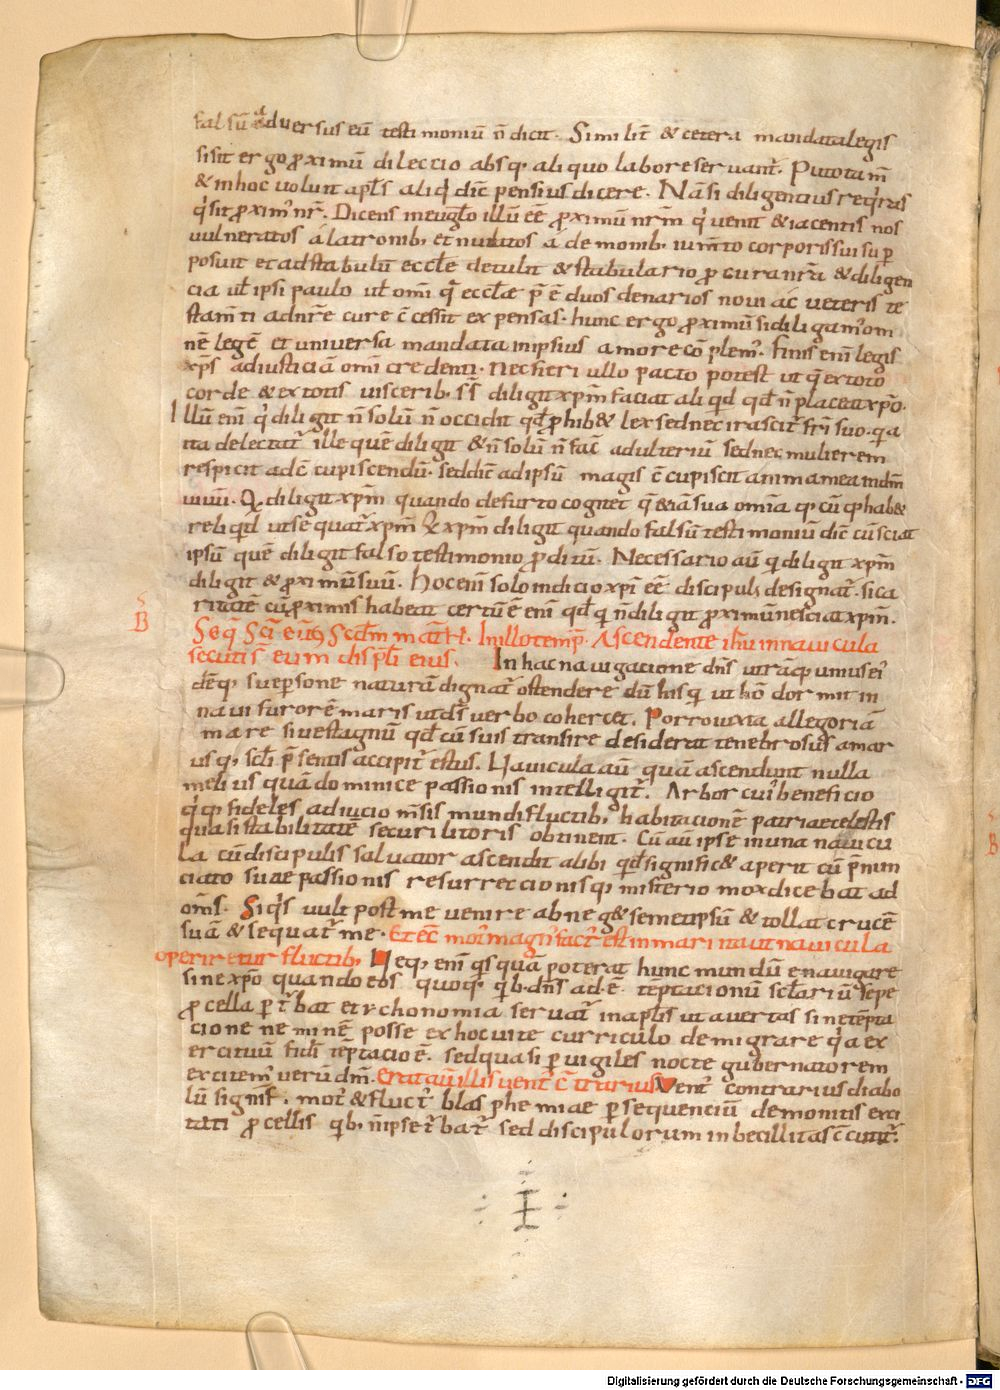 falsū adversus eū testimoniū n̄ dicit. Similit̄ & cetera mandatalegis
sisit ergo ꝓximū dileccio absq; aliquo labore servant̄. Puto tam̄
& inhoc volunt apl̄s aliqd dic̄ pensius dicere. Nāsi diligentius reqͥras
qͥsit ꝓximꝰ nr̄. Dicens ineuḡlo illū eē ꝓximū nrm̄ qͥ venit & iacentis nos
vulneratos a latronib; et nudatos a demonib; iumt̄o corporissui sup
posuit et adstabulū eccl̄e detulit & stabulario ꝓ curanr̄a & diligen
cia vl̄ ipsi paulo vl̄ omī qͥ eccl̄æ p̄ ē duos denarios novi ac veteris te
stam̄ti adnr̄e cure c̄cessit expensas. hunc ergo ꝓximū sidiligamꝰ om
nē legē et universa mandata inipsius amore cōplemꝰ. finis enī legis
xp̄s adiusticiā omī credenti. Necfieri ullo pacto potest ut qͥ extoto
corde & extotis visceribꝰ s̄s̄ diligit xp̄m faciat aliqd qd̄ n̄ placeat xp̄o.
Illū enī qͥ diligit n̄ solū n̄ occidit qd̄ ꝓhib& lex sed nec irascit̄ fr̄i suo. q̄a
ita delectat̄ ille quē diligit & n̄ solū n̄ fac̄ adulteriū sed nec mulierem
respicit adc̄cupiscendū. seddic̄ adipsū magis c̄cupiscit anima mea indm̄
vivū. Qͥ diligit xp̄m quando defurto cognet qͥ &iā sua omīa
reliqd ut sequat̄ xp̄m Qͥ xp̄m diligit quando falsū testimoniū dic̄ cū sciat
ipsū quē diligit falso testimonio ꝓditū. Necessario aū qͥ diligit xp̄m
diligit & ꝓximū suū. hoc enī solo indicio xp̄i eē discipulꝰ designat̄. si ca
ritatē cū ꝓximis habeat certū ē enī qd̄ qͥ n̄ diligit ꝓximū nesciat xp̄m.
B
Seq̄ Sc̄i eu̅g̅ Scd̄m matħ. Inillo temp̄. Ascendente ih̄u innavicula
secuti s̄ eum discpl̄i eius. In hac navigatione dn̄s utrāq; unius ei
dēq; sue persone naturā dignat̄ ostendere dū hisq; ut hō dormit in
navi furorē maris utds̄ verbo cohercet. Porro iuxta allegoriā
mare sive stagnū qd̄ cū suis transire desiderat tenebrosus amar
usq; scl̄i p̄sentis accipit̄ estus. Navicula aū quā ascendunt nulla
melius quā dominice passionis intelligit̄. Arbor cuiꝰ beneficio
qͥq; fideles adiuti om̄sis mundi fluctibꝰ habitacionē patriæ celestis
quasi stabilitatē securi litoris obtinent. Cū aū ipse in una navicu
la cū discipulis salvator ascendit alibi qd̄ signific& aperit cū p̄nun
ciato suæ passionis resurreccionisq; misterio mox dicebat ad
om̄s. Siqͥs vult post me venire abneg& semetipsū & tollat crucē
suā & sequat̄ me. Et ec̄ motꝰ magnꝰ factꝰ est in mari ita ut navicula
operiretur fluctib; Neq; enī qͥsquā poterat hunc mundū enavigare
sine xp̄o quando eos quoq; qͥb; dn̄s adē teptacionū scl̄ariū sepe
ꝓcella pt̄bat et ychonomia servat̄ in apl̄is ut avertas sine tēpta
cione neminē posse ex hoc vite curriculo demigrare qͥa ex
ercitiū fidi tēptacio ē. sed quasi pervigiles nocte gubernatorem
excitemꝰ verū dm̄. Erat aū illis ventꝰ c̄trarius Ventꝰ contrarius diabo
lū signif̄. motꝰ & fluctꝰ blasphemiæ persequenciū demonitis exci
tati ꝓcellis qͥb; n̄ipse t̄bat̄ sed discipulorum inbecillitas c̄cutit̄.
Digitalisierung gefördert durch die Deutsche Forschungsgemeinschaft - DFG